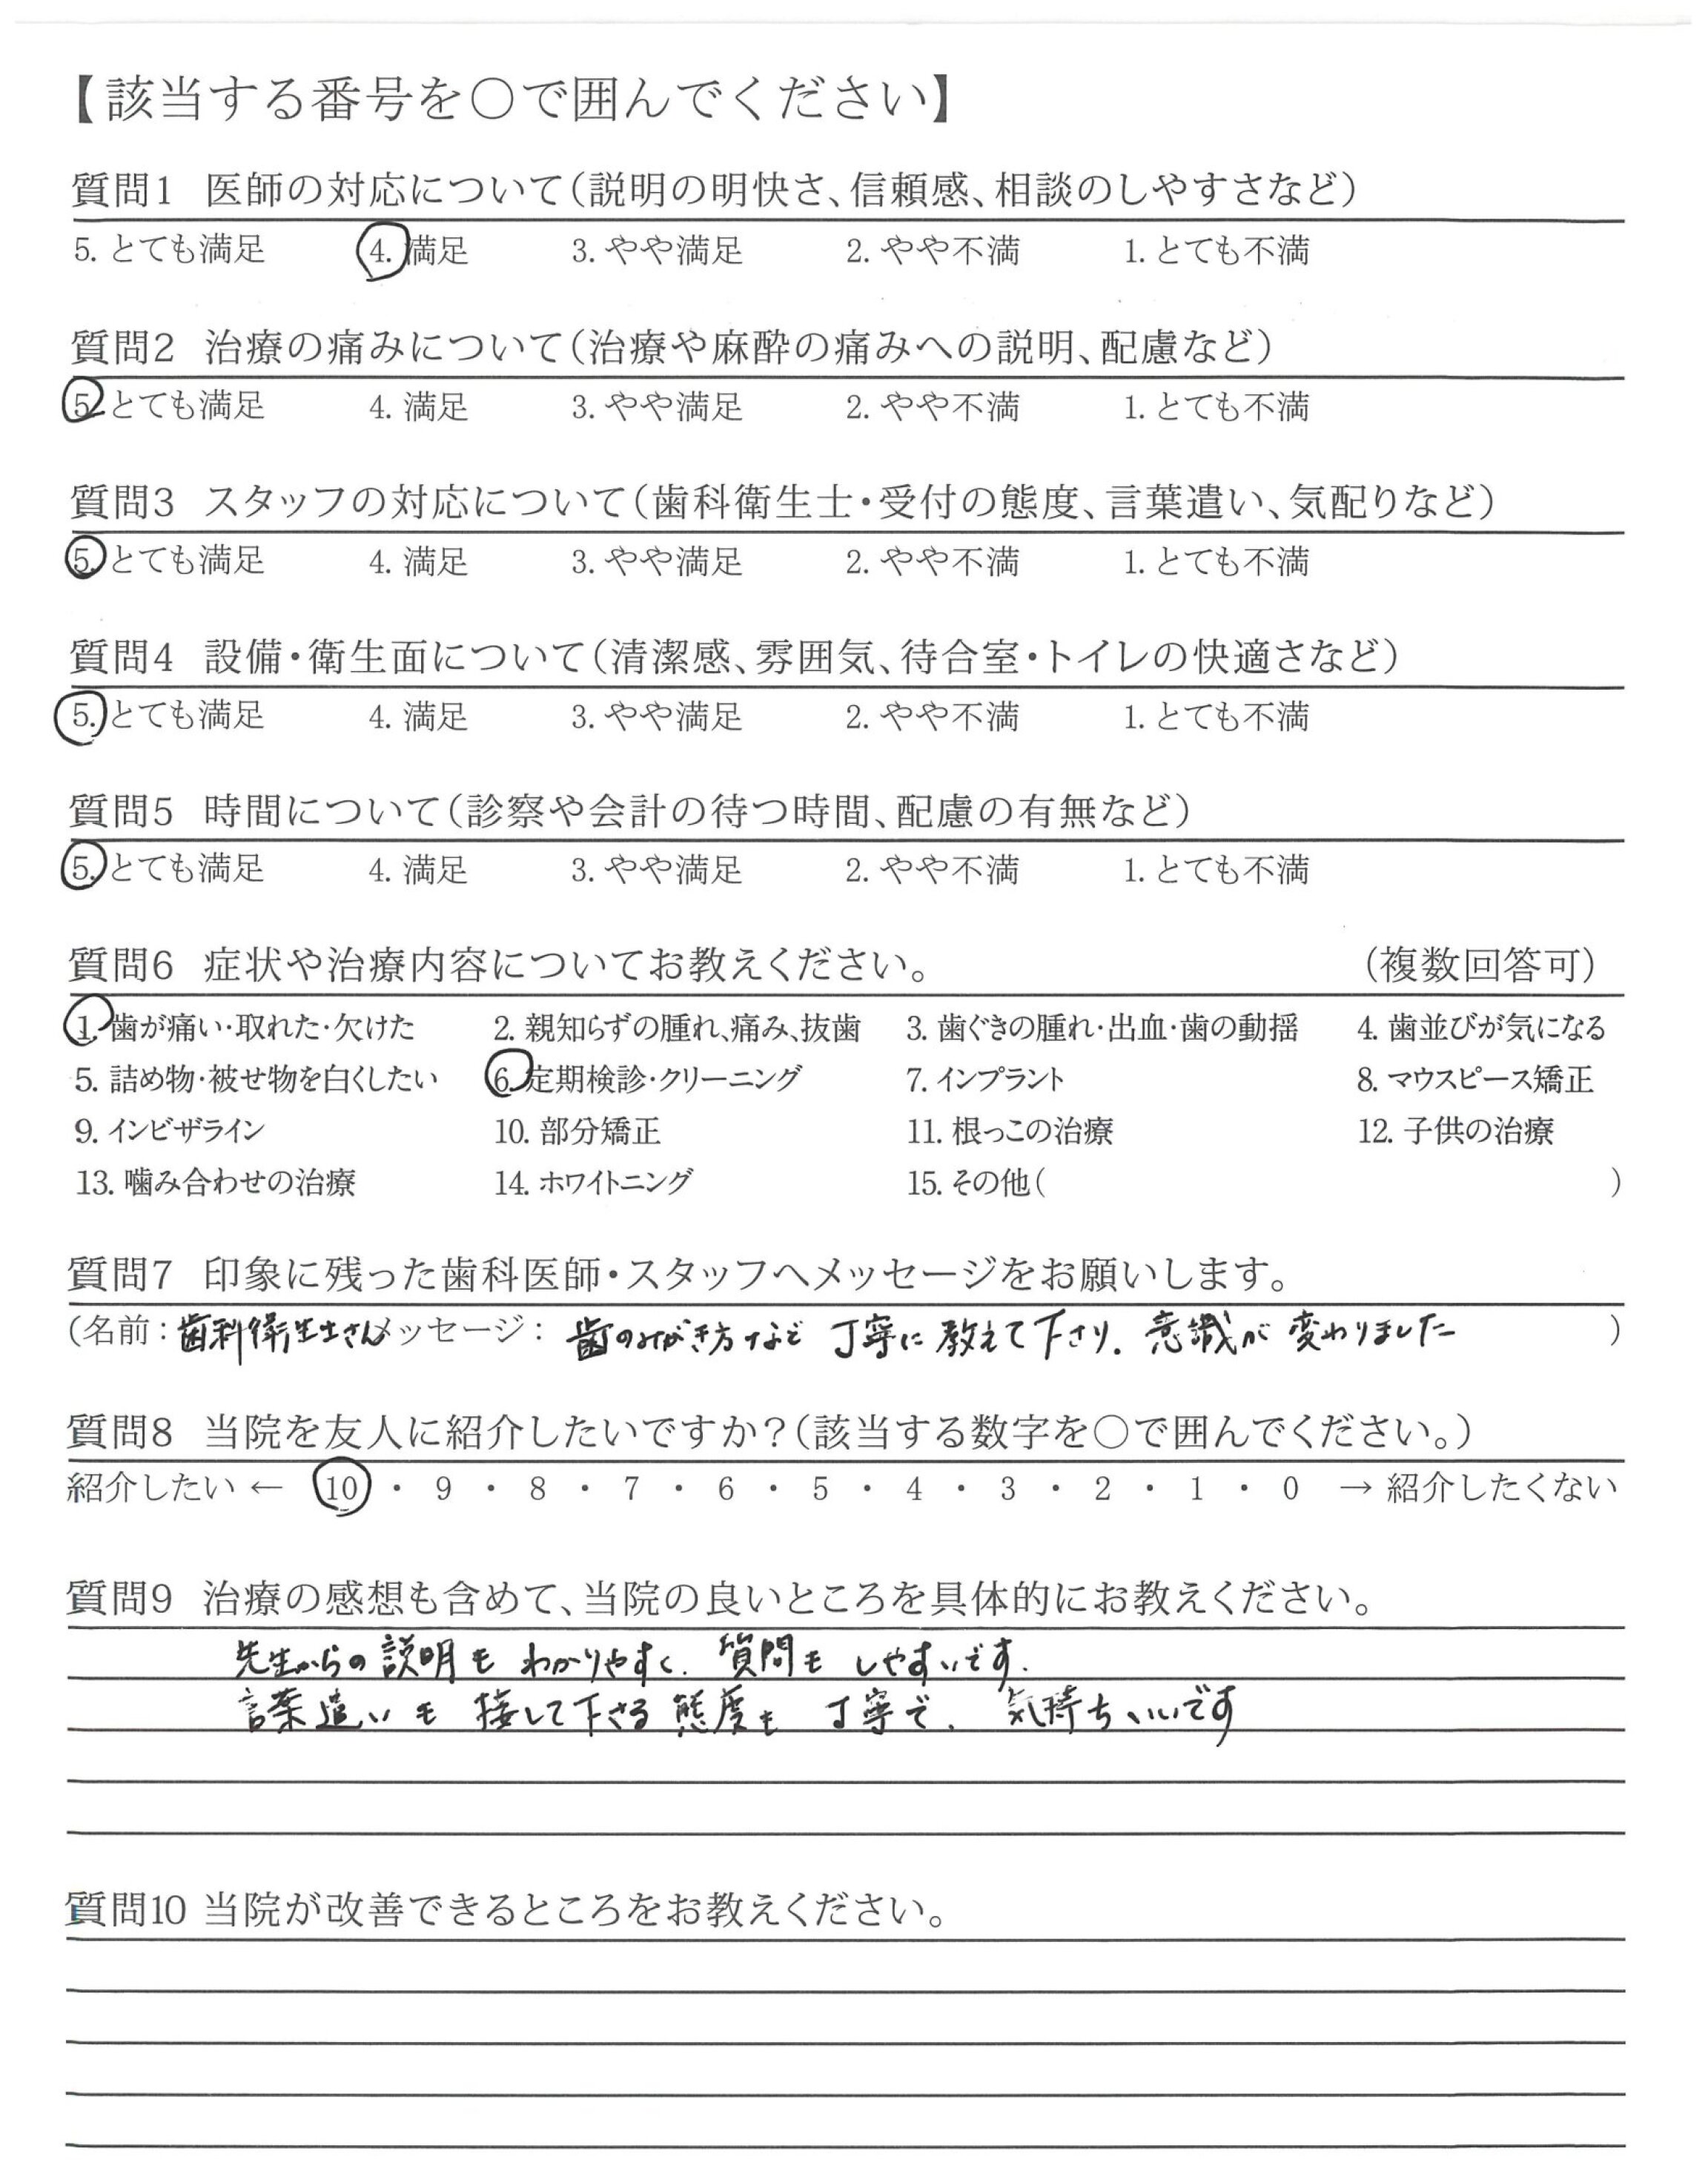 【該当する番号を○で囲んでください】
質問1 医師の対応について(説明の明快さ、信頼感、相談のしやすさなど)
5. とても満足 4. 満足 3. やや満足 2. やや不満 1. とても不満
質問2 治療の痛みについて(治療や麻酔の痛みへの説明、配慮など)
5. とても満足 4. 満足 3. やや満足 2. やや不満 1. とても不満
質問3 スタッフの対応について(歯科衛生士・受付の態度、言葉遣い、気配りなど)
5. とても満足 4. 満足 3. やや満足 2. やや不満 1. とても不満
質問4 設備・衛生面について(清潔感、雰囲気、待合室・トイレの快適さなど)
5. とても満足 4. 満足 3. やや満足 2. やや不満 1. とても不満
質問5 時間について(診察や会計の待つ時間、配慮の有無など)
5. とても満足 4. 満足 3. やや満足 2. やや不満 1. とても不満
質問6 症状や治療内容についてお教えください。 (複数回答可)
1. 歯が痛い・取れた・欠けた 2. 親知らずの腫れ、痛み、抜歯 3. 歯ぐきの腫れ・出血・歯の動揺 4. 歯並びが気になる
5. 詰め物・被せ物を白くしたい 6. 定期検診・クリーニング 7. インプラント 8. マウスピース矯正
9. インビザライン 10. 部分矯正 11. 根っこの治療 12. 子供の治療
13. 噛み合わせの治療 14. ホワイトニング 15. その他( )
質問7 印象に残った歯科医師・スタッフへメッセージをお願いします。
(名前：歯科衛生士さん メッセージ：歯のみがき方など 丁寧に教えて下さり. 意識が変わりました )
質問8 当院を友人に紹介したいですか？(該当する数字を○で囲んでください。)
紹介したい ← 10 ・ 9 ・ 8 ・ 7 ・ 6 ・ 5 ・ 4 ・ 3 ・ 2 ・ 1 ・ 0 → 紹介したくない
質問9 治療の感想も含めて、当院の良いところを具体的にお教えください。
先生からの説明も わかりやすく. 質問も しやすいです.
言葉遣いも 接して下さる態度も 丁寧で. 気持ちいいです
質問10 当院が改善できるところをお教えください。